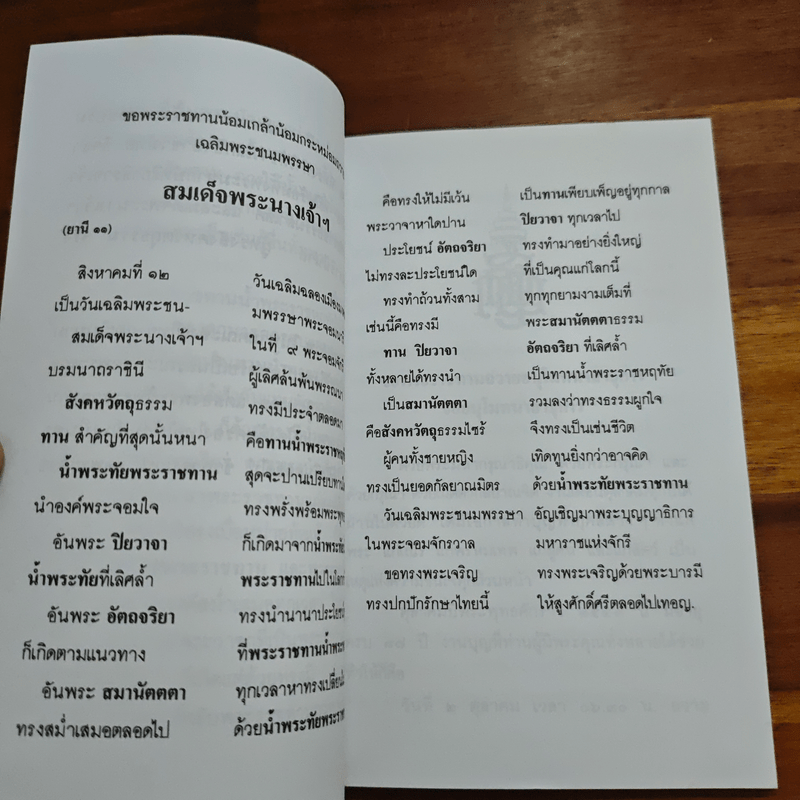 ขอพระราชทานน้อมเกล้าน้อมกระหม่อม
เฉลิมพระชนมพรรษา
สมเด็จพระนางเจ้าฯ
(ยานี ๑๑)
สิงหาคมที่ ๑๒ วันเฉลิมฉลอง
เป็นวันเฉลิมพระชน- มพรรษา
สมเด็จพระนางเจ้าฯ ในที่ ๙
บรมนาถราชินี ผู้เลิศล้นพ้น
สังคหวัตถุธรรม ทรงมีประจำตลอด
ทาน สำคัญที่สุดนั้นหนา คือทานน้ำ
น้ำพระทัยพระราชทาน สุดจะปานเปรียบ
นำองค์พระจอมใจ ทรงพรั่งพร้อม
อันพระ ปิยวาจา ก็เกิดมาจาก
น้ำพระทัยที่เลิศล้ำ พระราชทานไปใน
อันพระ อัตถจริยา ทรงนำนานาประโยชน์
ก็เกิดตามแนวทาง ที่พระราชทาน
อันพระ สมานัตตตา ทุกเวลาหาทรง
ทรงสม่ำเสมอตลอดไป ด้วยน้ำพระทัย
คือทรงให้ไม่มีเว้น เป็นทานเพียบเพ็ญอยู่ทุกกาล
พระวาจาหาใดปาน ปิยวาจา ทุกเวลาไป
ประโยชน์ อัตถจริยา ทรงทำมาอย่างยิ่งใหญ่
ไม่ทรงละประโยชน์ใด ที่เป็นคุณแก่โลกนี้
ทรงทำถ้วนทั้งสาม ทุกทุกยามงามเต็มที่
เช่นนี้คือทรงมี พระสมานัตตตาธรรม
ทาน ปิยวาจา อัตถจริยา ที่เลิศล้ำ
ทั้งหลายได้ทรงนำ เป็นทานน้ำพระราชหฤทัย
เป็นสมานัตตตา รวมลงว่าทรงธรรมผูกใจ
คือสังคหวัตถุธรรมไซร้ จึงทรงเป็นเช่นชีวิต
ผู้คนทั้งชายหญิง เทิดทูนยิ่งกว่าอาจคิด
ทรงเป็นยอดกัลยาณมิตร ด้วยน้ำพระทัยพระราชทาน
วันเฉลิมพระชนมพรรษา อัญเชิญมาพระบุญญาธิการ
ในพระจอมจักรวาล มหาราชแห่งจักรี
ขอทรงพระเจริญ ทรงพระเจริญด้วยพระบารมี
ทรงปกปักรักษาไทยนี้ ให้สูงศักดิ์ศรีตลอดไปเทอญ.